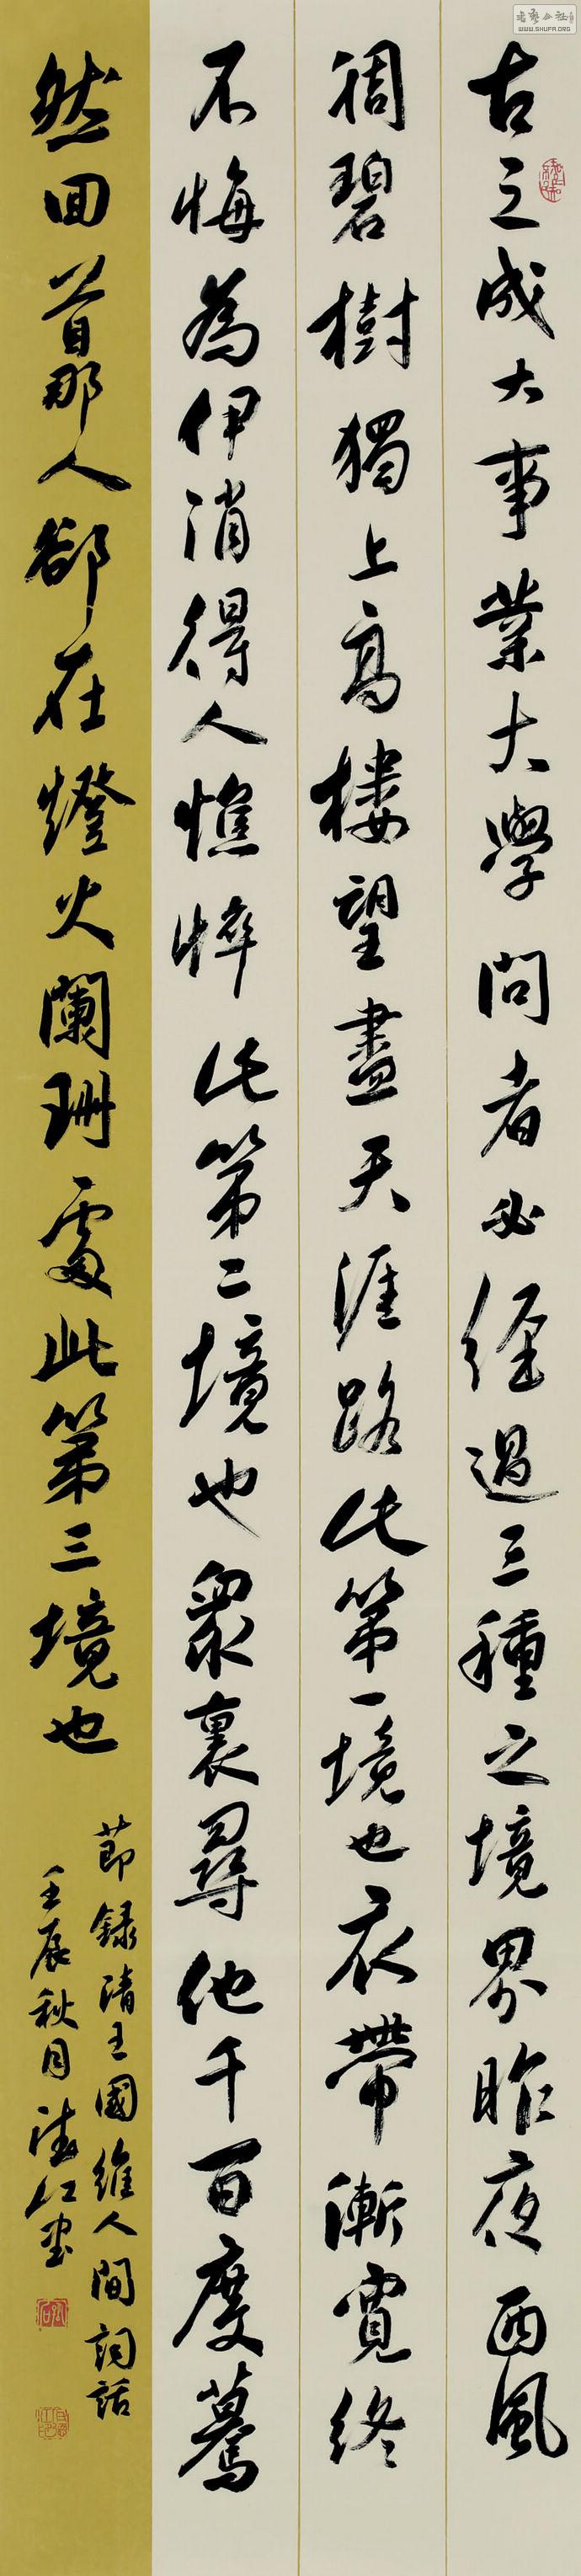 古之成大事業大學問者必經過三種之境界昨夜西風
凋碧樹獨上高樓望盡天涯路此第一境也衣帶漸寬終
不悔為伊消得人憔悴此第二境也眾裏尋他千百度驀
然回首那人卻在燈火闌珊處此第三境也
節録清王國維人間詞話
壬辰秋月
書藝公社
WWW.SHUFA.ORG